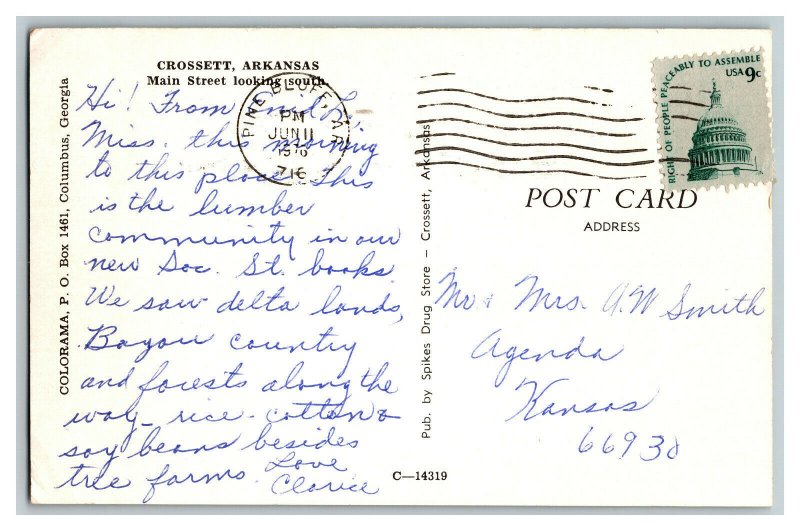 CROSSETT, ARKANSAS
Main Street looking south.
Hi! From
Miss. this morning
to this place. This
is the lumber
community in our
new Soc. St. books.
We saw delta lands,
Bayou country
and forests along the
way - rice - cotton &
soy beans besides
tree farms. Love
Clarice
COLORAMA, P. O. Box 1461, Columbus, Georgia
PINE BLUFF, AR
PM
JUN 11
716
RIGHT OF PEOPLE PEACEABLY TO ASSEMBLE
USA 9c
Pub. by Spikes Drug Store – Crossett, Arkansas
POST CARD
ADDRESS
Mr & Mrs. A W Smith
Agenda
Kansas
66930
C—14319